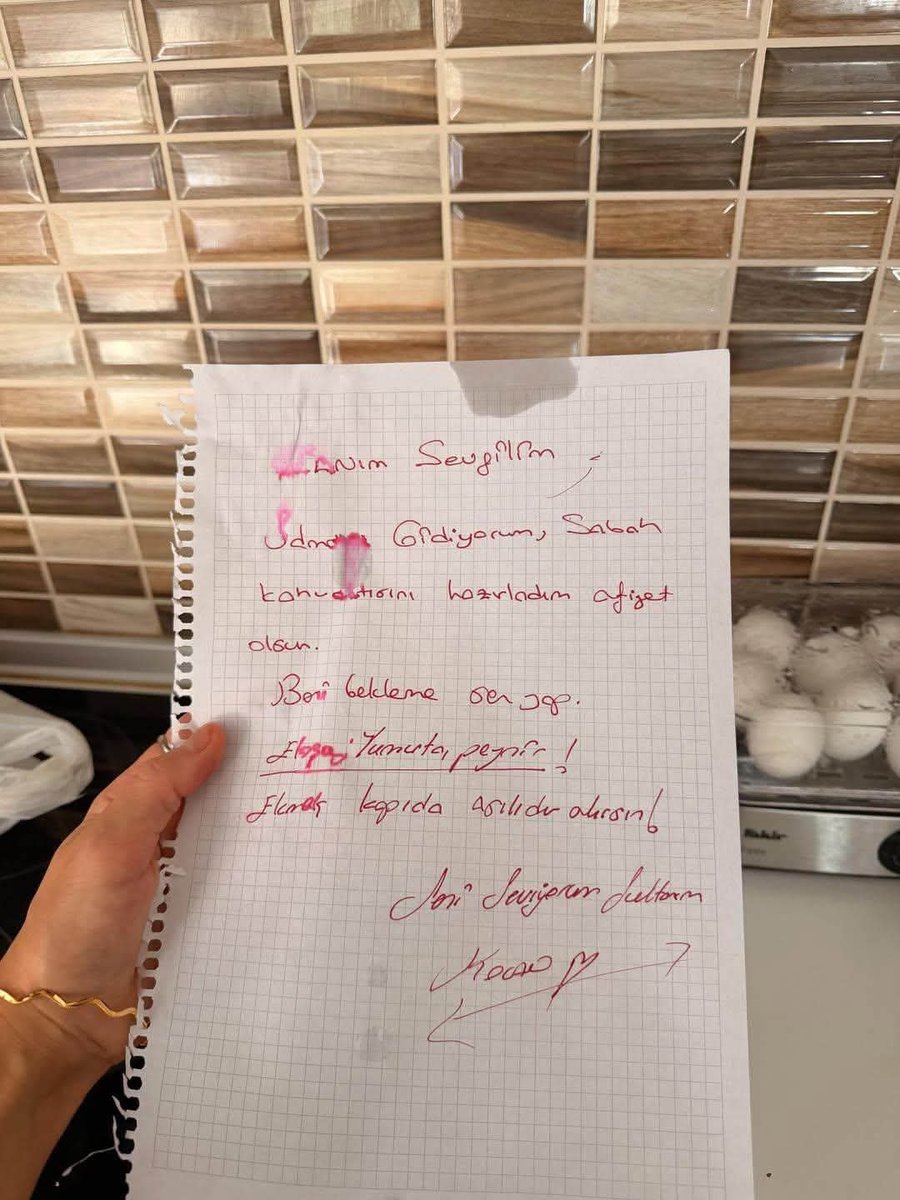 Canım Sevgilim
İdmana Gidiyorum, Sabah
kahvaltısını hazırladım afiyet
olsun.
Beni bekleme sen yap.
Yumurta, peynir!
Ekmek kapıda asılıdır alırsın!
Seni Seviyorum Sultanım
Kocan